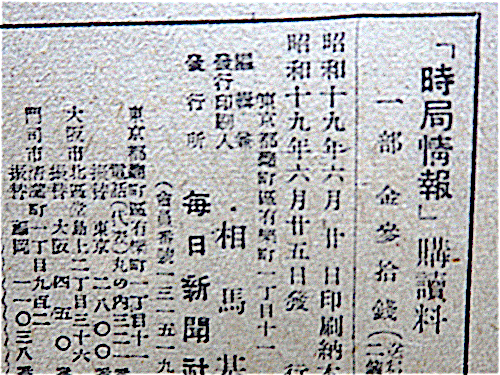 「時局情報」購讀料
一部金參拾錢(
昭和十九年六月廿日印刷納本
昭和十九年六月廿五日發行
東京都麴町區有樂町一丁目十一
編輯兼
發行印刷人 相馬基
發行所 每日新聞社
(會員番號一三一五一九
東京都麴町區有樂町一丁目十一
電話(代表)丸の內三二一
振替東京二八〇〇番
大阪市北區堂島上二丁目三十六
振替大阪四五〇番
門司市清瀧町一丁目九百二
振替福岡一一〇三八番